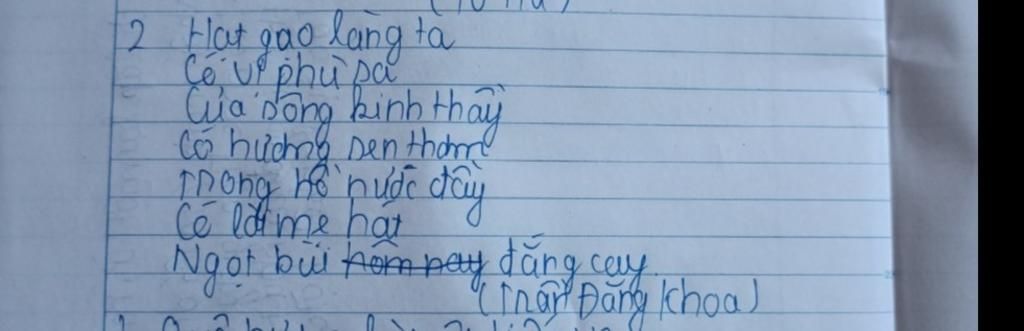 2 Hạt gạo làng ta
Có vị phù sa
Của sông kinh thầy
Có hương sen thơm
Trong hồ nước đầy
Có lời mẹ hát
Ngọt bùi hôm nay đắng cay.
(Trần Đăng Khoa)